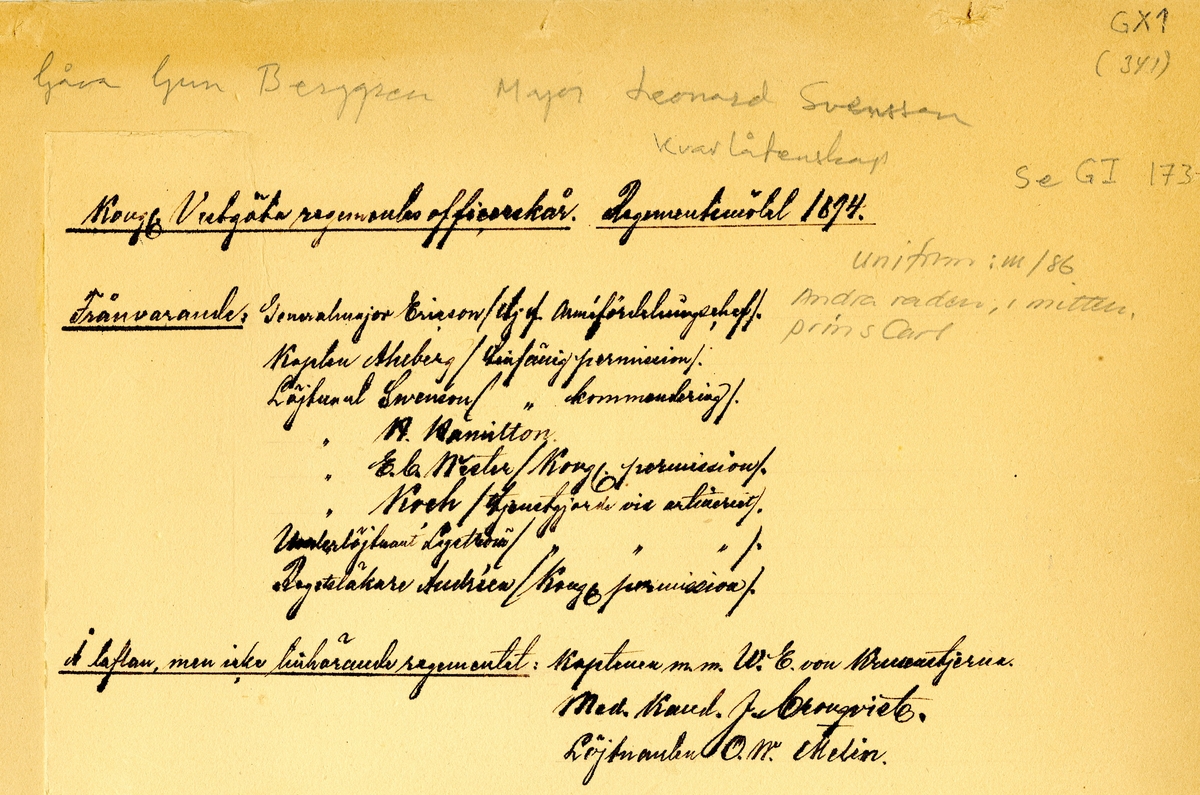 GX1
(341)
Gåva Gun Berggren Major Leonard Svensson
Kvarlåtenskap
Se GI 173
Kongl Vestgöta regementes officerskår. Regementsmöte 1894.
uniform: m/86
Andra raden, i mitten,
prins Carl
Frånvarande: Generalmajor Ericson /tj.f. Arméfördelningschef/.
Kapten Ahlberg / permission/.
Löjtnant Swenson/ " kommendering/.
" H. Hamilton.
" E.C. Wester /Kongl. permission/.
" Koch /tjenstgjorde vid artilleriet/.
Underlöjtnant Legström/ " " " /.
Regetsläkare Andréen /Kongl permission/.
Å taflan, men icke tillhörande regementet: Kaptenen m.m. W. E. von Krusenstjerna.
Med. Kand. J. Cronqvist.
Löjtnanten O. W. Melin.